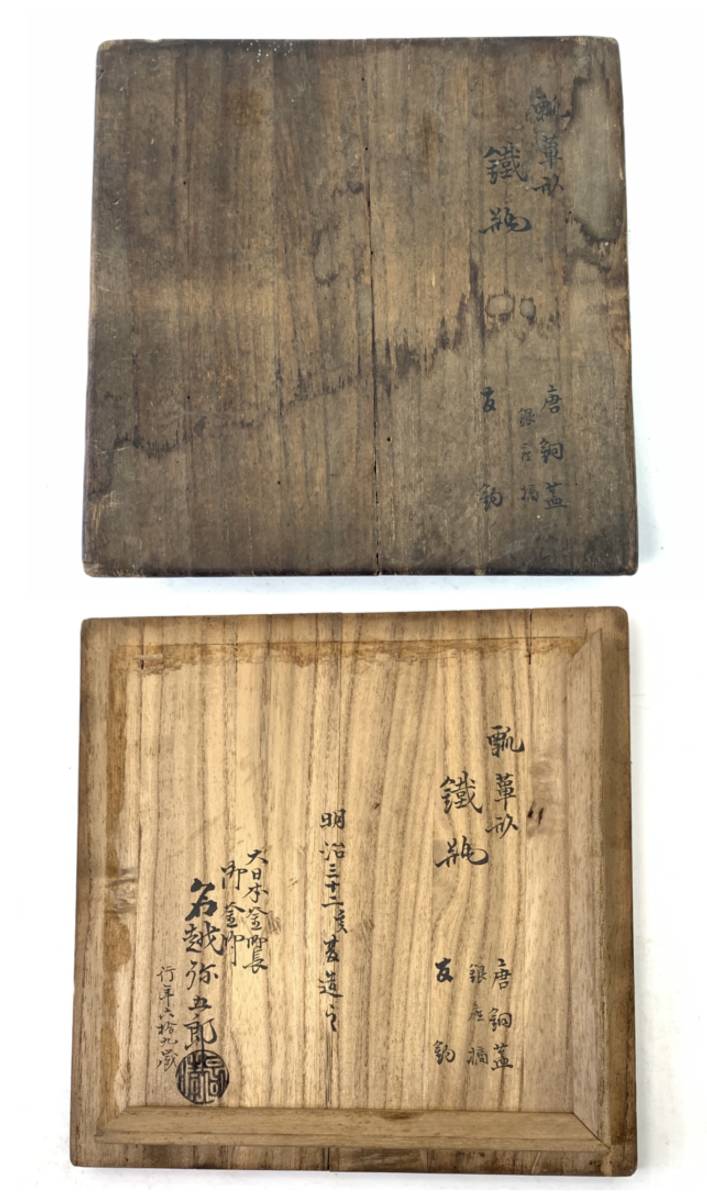 瓢箪形
鐵瓶
唐銅蓋
銀座摘
友鈎
瓢箪形
鐵瓶
唐銅蓋
銀座摘
友鈎
明治三十二年夏造之
大日本釜師長
御釜師
名越弥五郎
行年六拾九歳